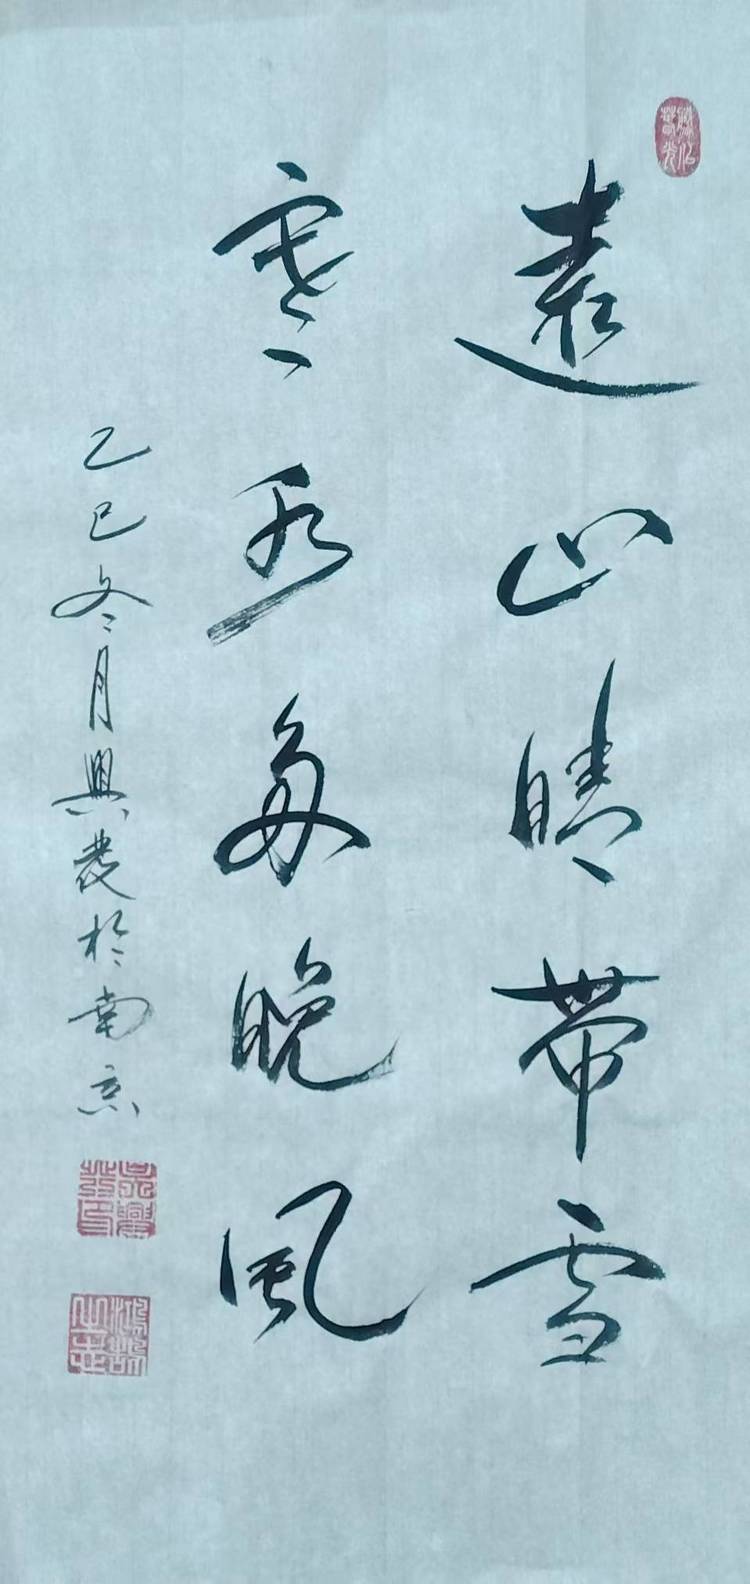 遠山晴带雪
寒水多晚風
乙巳冬月興發於南京